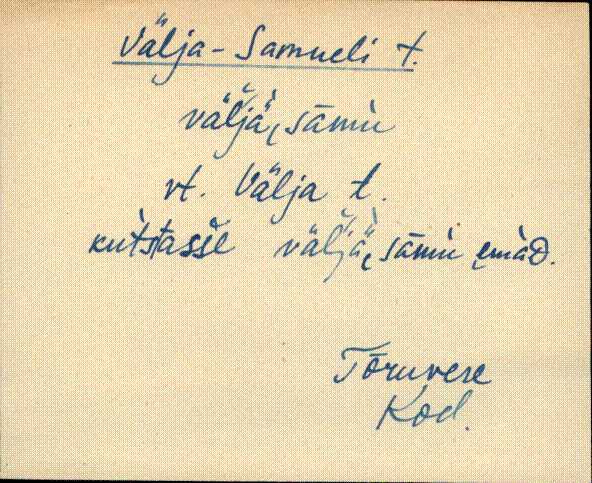 Välja-Samueli t.
väľjä, sāmìi
vt. Välja t.
kut̀stasse väľjä, sāmìi emàD.
Tõruvere
Kod.